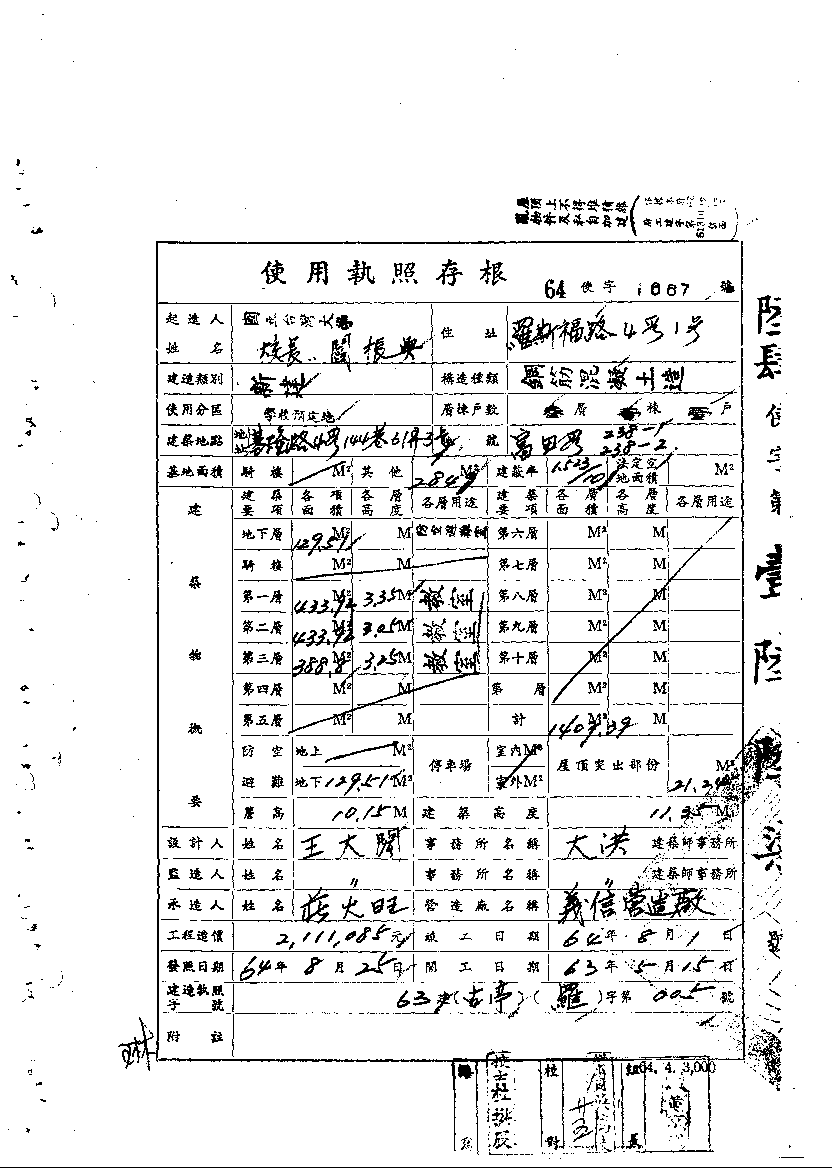 屋頂上不得堆積雜
物件及私自加建
使用執照存根
64 使字 1667 號
起造人姓名 國立台灣大學 校長:閻振興 住址 羅斯福路4段1号
建造類別 新建 構造種類 鋼筋混凝土造
使用分區 學校預定地 層棟戶數 層 棟 戶
建築地點 基隆路4段144巷61弄3 號 富田段 238-1 238-2
基地面積 騎樓 M² 其他 2849 M² 建蔽率 1523/10 法定空地面積 M²
建築物概要
建築要項 各項面積 各層高度 各層用途 建築要項 各層面積 各層高度 各層用途
地下層 129.51 M² M 第六層 M² M
騎樓 M² M 第七層 M² M
第一層 433.92 M² 3.35 M 教室 第八層 M² M
第二層 433.92 M² 3.05 M 教室 第九層 M² M
第三層 388.8 M² 3.25 M 教室 第十層 M² M
第四層 M² M 第 層 M² M
第五層 M² M 計 1409.39 M² M
防空 地上 M² 停車場 室內 M² 屋頂突出部份 M²
避難 地下 129.51 M² 室外 M² 21.24
簷高 10.15 M 建築高度 11.35 M
設計人 姓名 王大閎 事務所名稱 大洪 建築師事務所
監造人 姓名 〃 事務所名稱 〃 建築師事務所
承造人 姓名 莊火旺 營造廠名稱 義信營造廠
工程造價 2,111,085 元 竣工日期 64年8月1日
發照日期 64年8月25日 開工日期 63年5月15日
建造執照字號 63建(古亭)(羅)字第 005 號
附註
64.4.3,000